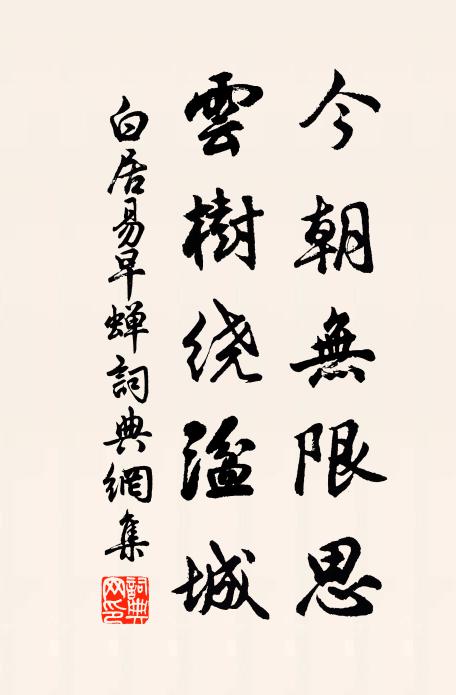 今朝無限思
雲樹绕湓城
白居易早蝉詞典網集
詞典網印